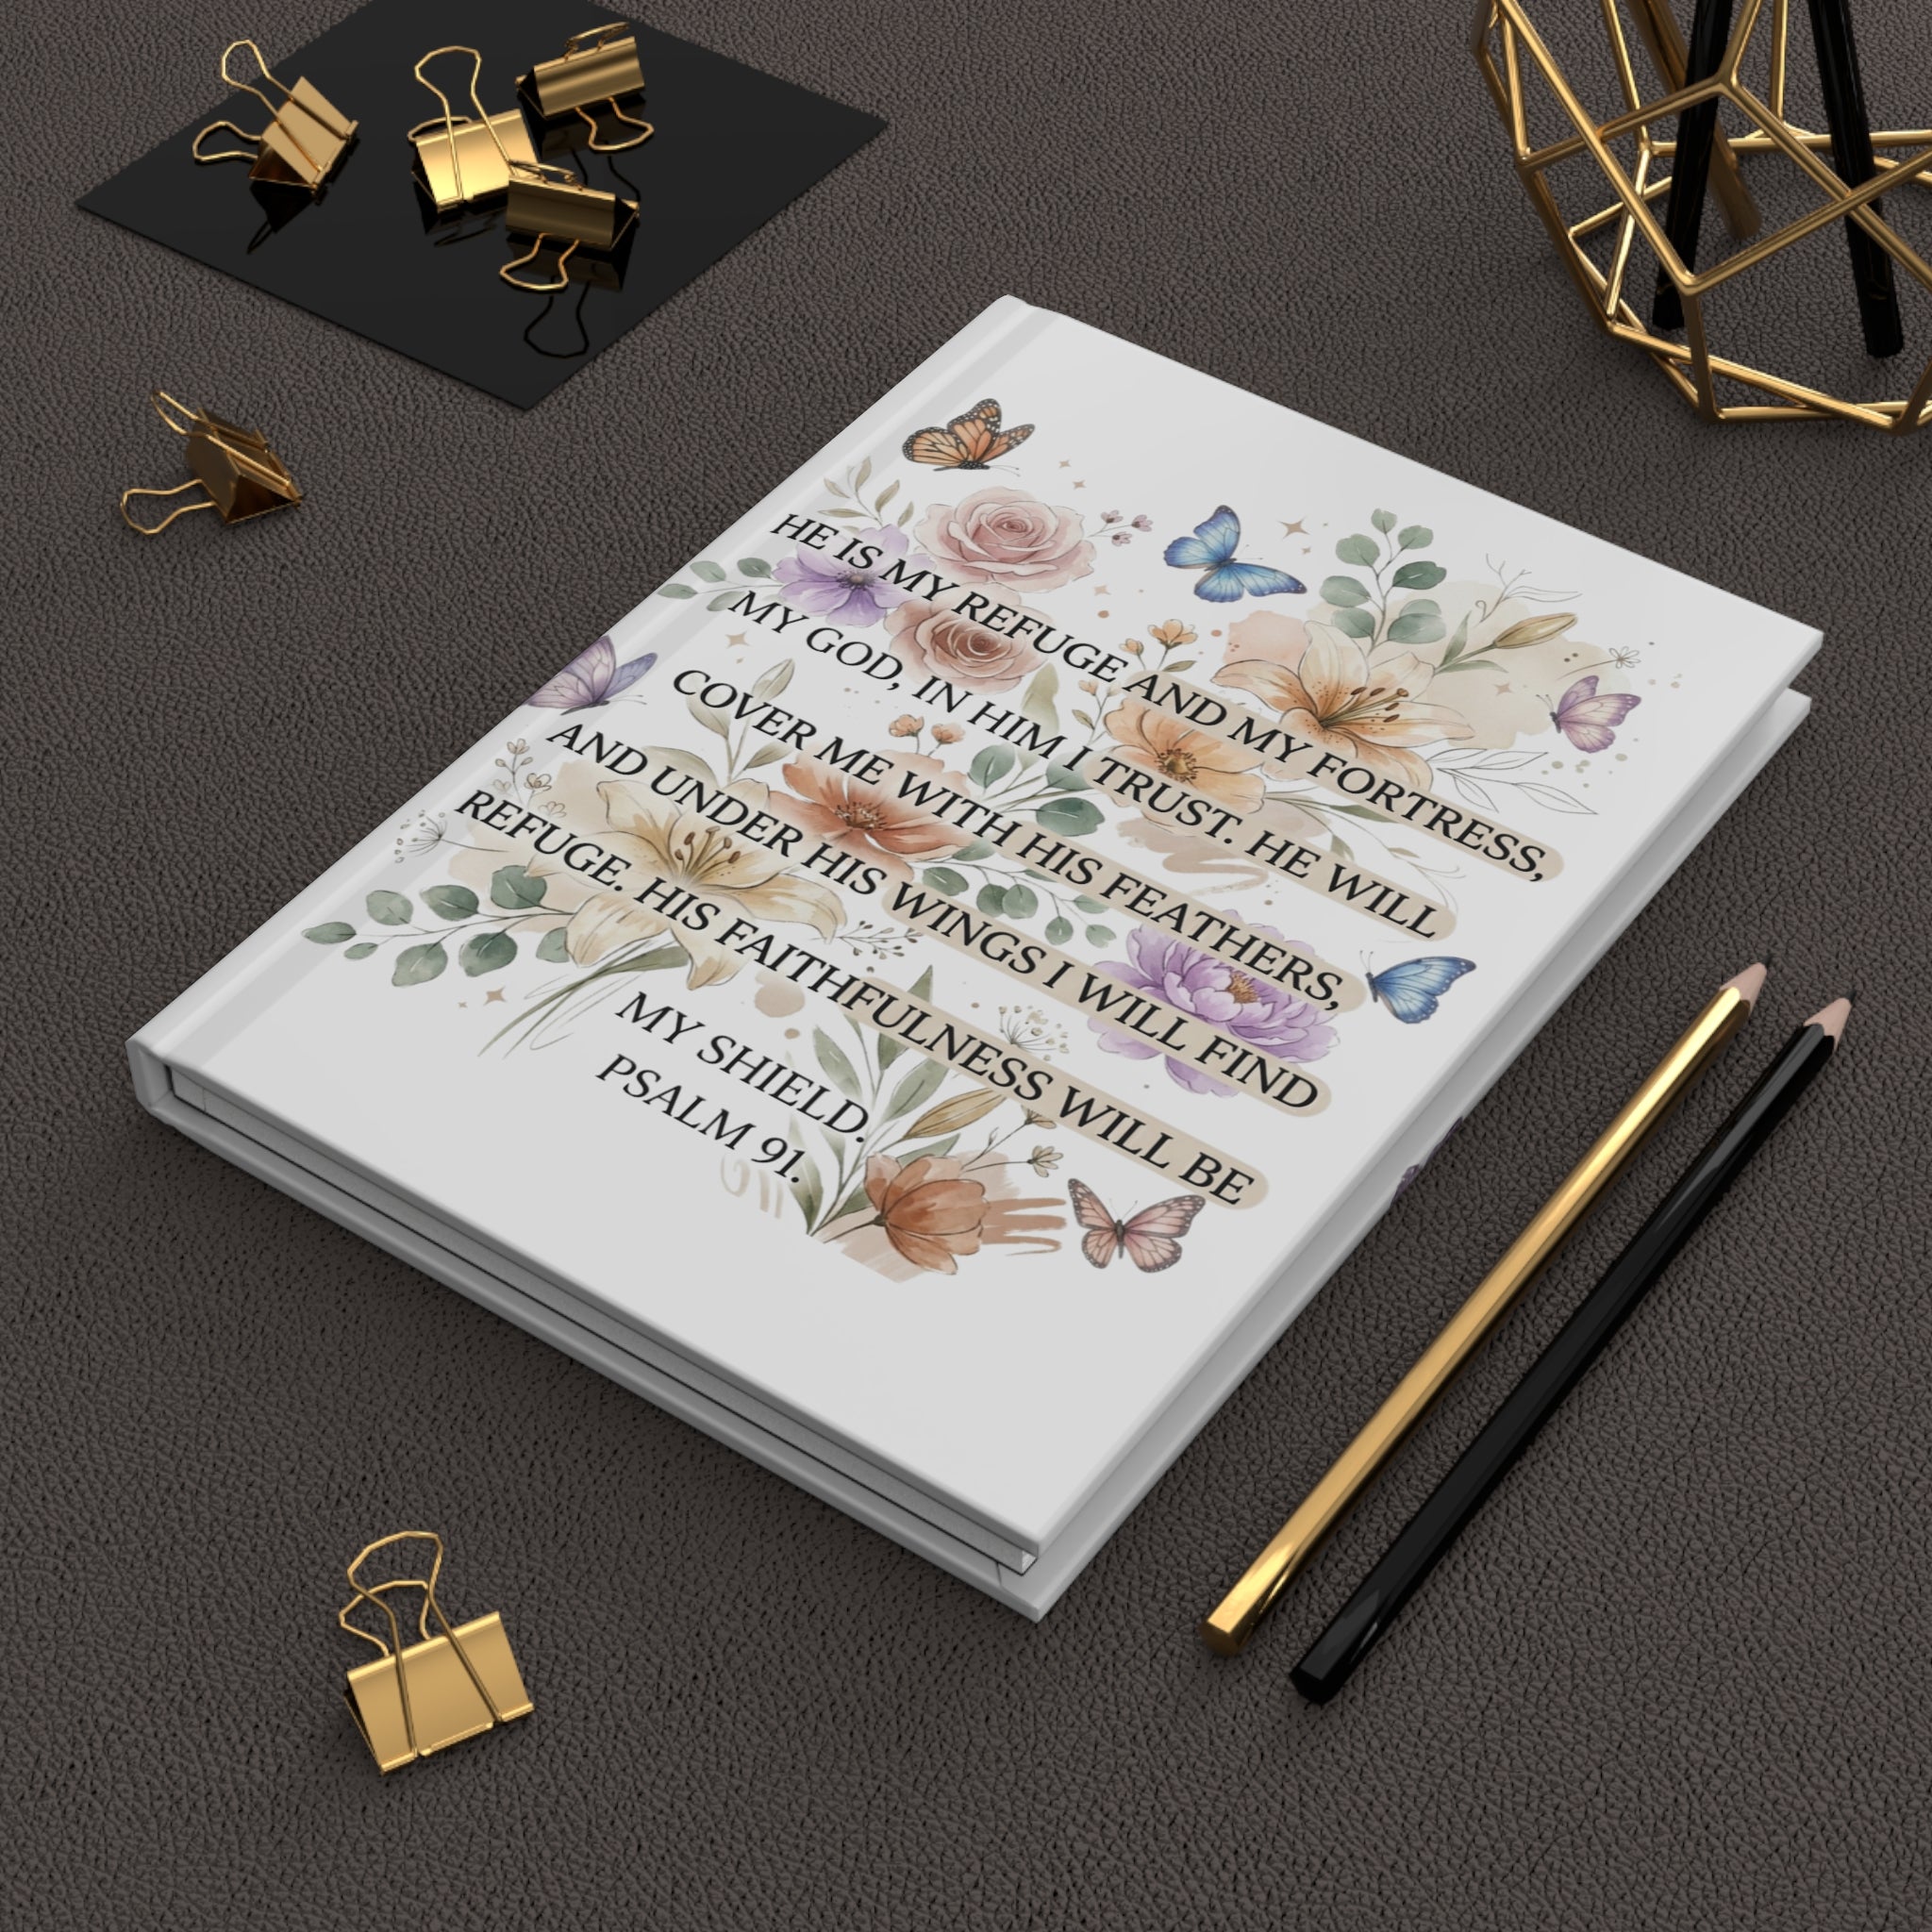 HE IS MY REFUGE AND MY FORTRESS,
MY GOD, IN HIM I TRUST. HE WILL
COVER ME WITH HIS FEATHERS,
AND UNDER HIS WINGS I WILL FIND
REFUGE. HIS FAITHFULNESS WILL BE
MY SHIELD.
PSALM 91.